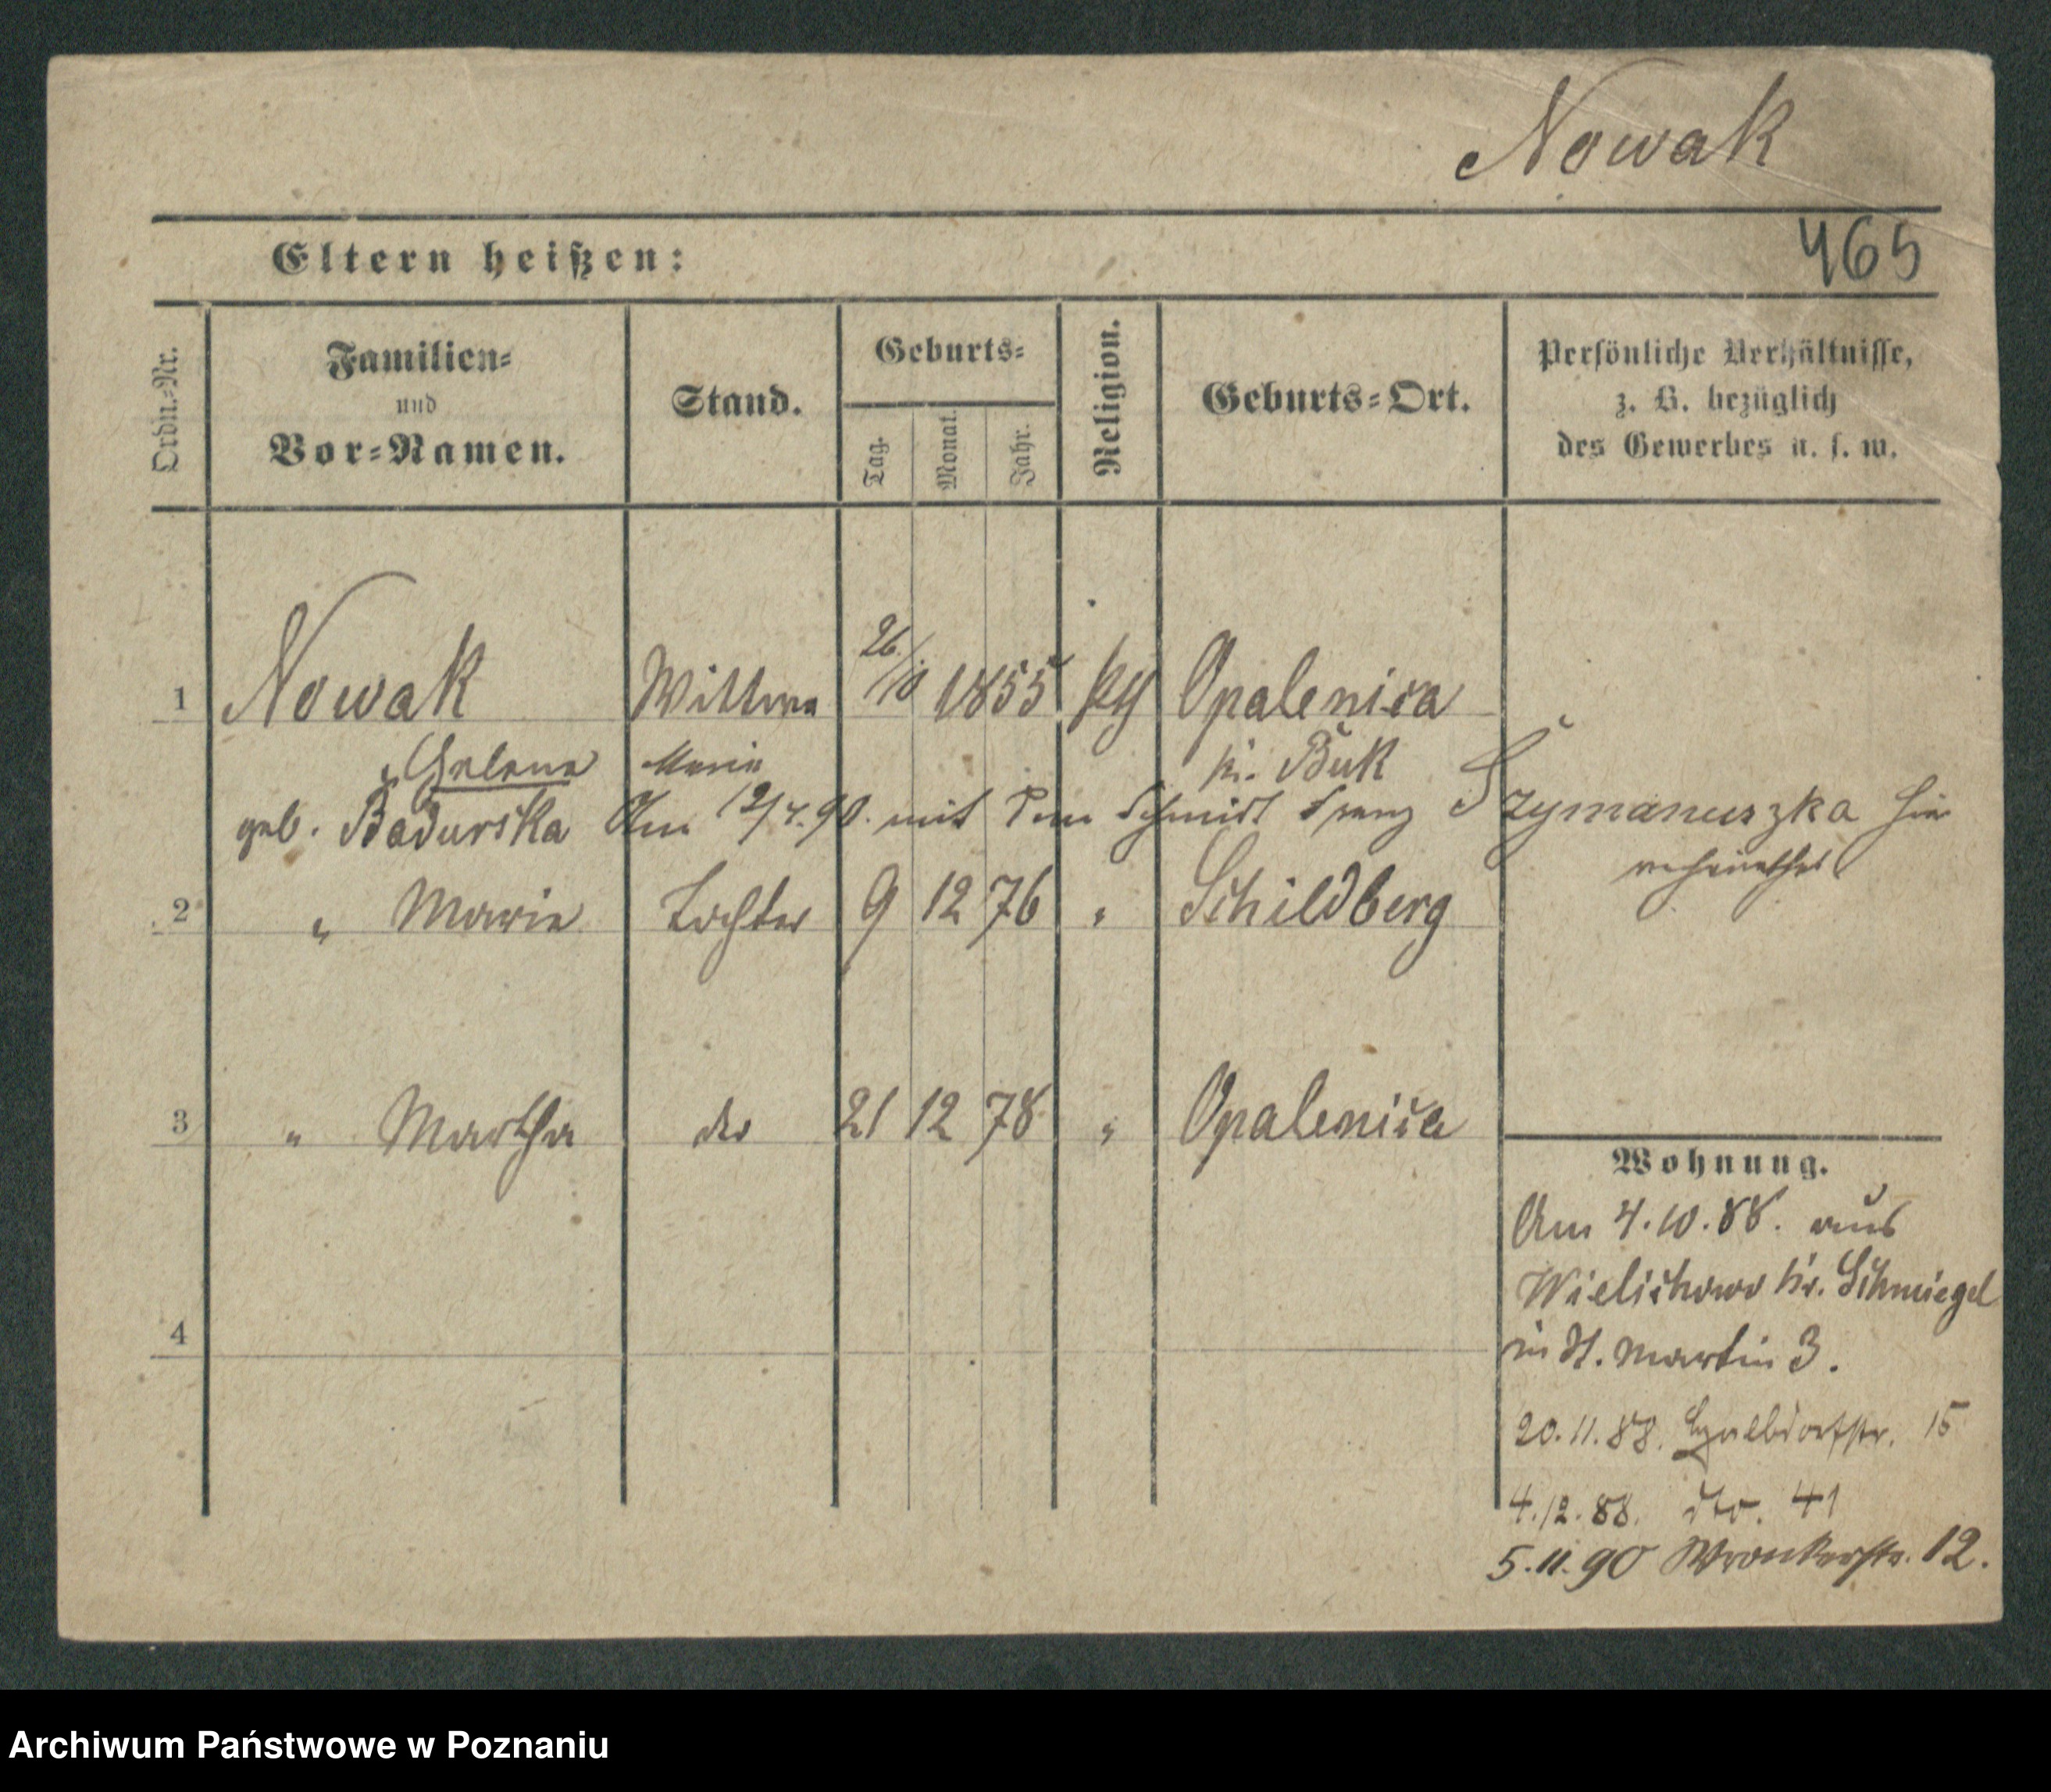 Nowak
465
Eltern heißen:
Ordn.-Nr.
Familien-
und
Vor-Namen.
Stand.
Geburts-
Tag.
Monat.
Jahr.
Religion.
Geburts-Ort.
Persönliche Verhältnisse,
z. B. bezüglich
des Gewerbes u. s. w.
1 Nowak Wittwe 26/10 1855 kth Opalenica
Helena Maria kr. Buk
geb. Badurska Am 12/4.90. mit dem Schmidt Franz Szymanuszka hier
verheirathet
2 " Marie Tochter 9 12 76 " Schildberg
3 " Martha dto 21 12 78 " Opalenica
4
Wohnung.
Am 4.10.88. aus
Wielichowo Kr. Schmiegel
in St. Martin 3.
20.11.88. 15
4.12.88. dto. 41
5.11.90 Wronkerstr. 12.
Archiwum Państwowe w Poznaniu